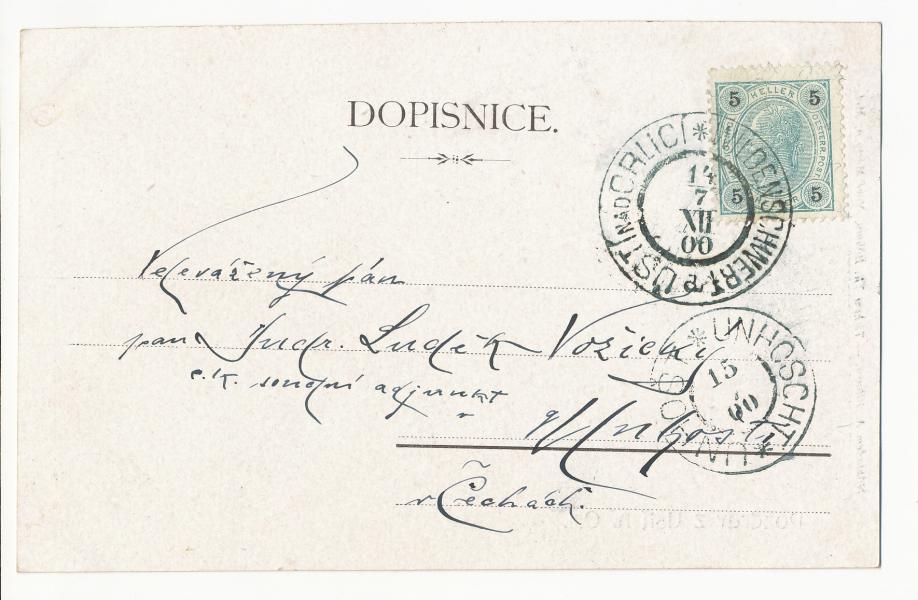 DOPISNICE.
5 HELLER 5
OESTERR. POST
5 5
WILDENSCHWERT * ÚSTÍ NAD ORLICÍ *
14
7
XII
00
Velevážený pán
pan Judr. Luděk Vožický
c.k. soudní adjunkt
v Unhošti
v Čechách.
* UNHOSCHT * UNHOŠŤ
15
00
Pozdrav z Ústí n. O.